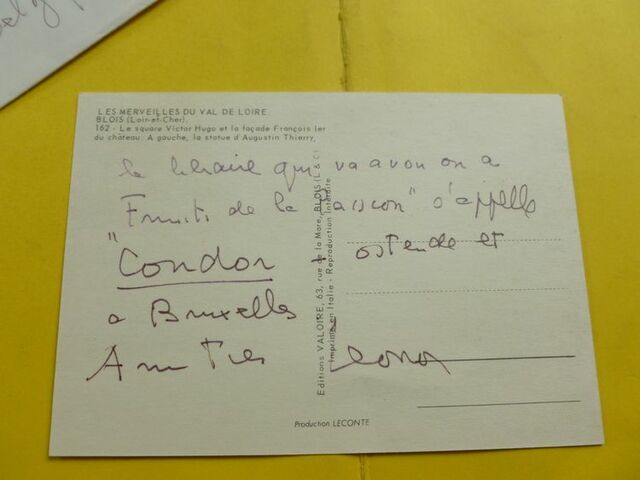 LES MERVEILLES DU VAL DE LOIRE.
BLOIS (Loir-et-Cher).
162 - Le square Victor Hugo et la façade François Ier
du château. A gauche, la statue d'Augustin Thierry,
le libraire qui va avou on a
Fruits de la Passion" s'appelle
"Condor - ostende et
a Bruxelles
Amitiés
Editions VALOIRE, 63, rue de la Mare, BLOIS (L & C)
Imprimé en Italie - Reproduction Interdite
Production LECONTE